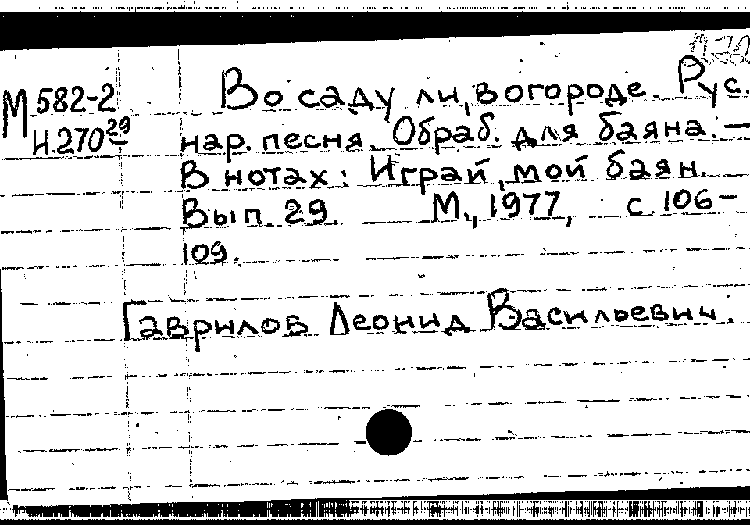 М 582-2
Н.270 29
Во саду ли, в огороде. Рус.
нар. песня. Обраб. для баяна. —
В нотах: Играй, мой баян.
Вып. 29. М., 1977, с 106-
109.
Гаврилов Леонид Васильевич.